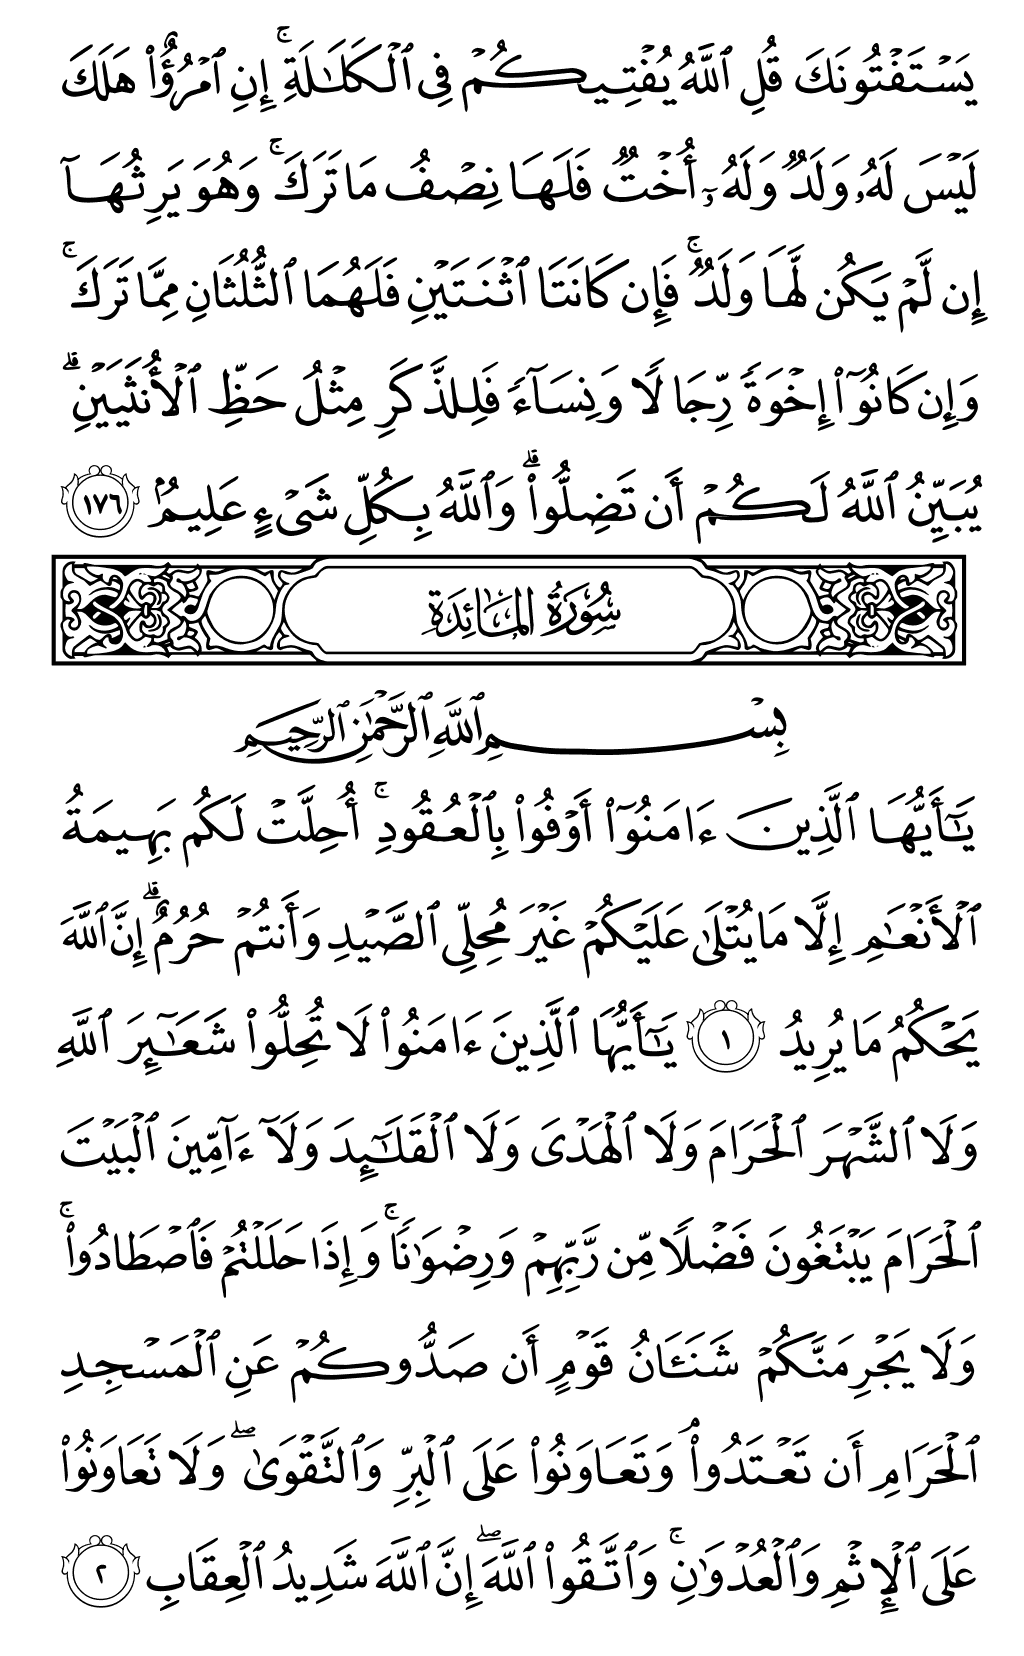 يَسۡتَفۡتُونَكَ قُلِ ٱللَّهُ يُفۡتِيكُمۡ فِي ٱلۡكَلَٰلَةِۚ إِنِ ٱمۡرُؤٌاْ هَلَكَ
لَيۡسَ لَهُۥ وَلَدٞ وَلَهُۥٓ أُخۡتٞ فَلَهَا نِصۡفُ مَا تَرَكَۚ وَهُوَ يَرِثُهَآ
إِن لَّمۡ يَكُن لَّهَا وَلَدٞۚ فَإِن كَانَتَا ٱثۡنَتَيۡنِ فَلَهُمَا ٱلثُّلُثَانِ مِمَّا تَرَكَۚ
وَإِن كَانُوٓاْ إِخۡوَةٗ رِّجَالٗا وَنِسَآءٗ فَلِلذَّكَرِ مِثۡلُ حَظِّ ٱلۡأُنثَيَيۡنِۗ
يُبَيِّنُ ٱللَّهُ لَكُمۡ أَن تَضِلُّواْۗ وَٱللَّهُ بِكُلِّ شَيۡءٍ عَلِيمُۢ ١٧٦
سُورَةُ المَائِدَةِ
بِسۡمِ ٱللَّهِ ٱلرَّحۡمَٰنِ ٱلرَّحِيمِ
يَٰٓأَيُّهَا ٱلَّذِينَ ءَامَنُوٓاْ أَوۡفُواْ بِٱلۡعُقُودِۚ أُحِلَّتۡ لَكُم بَهِيمَةُ
ٱلۡأَنۡعَٰمِ إِلَّا مَا يُتۡلَىٰ عَلَيۡكُمۡ غَيۡرَ مُحِلِّي ٱلصَّيۡدِ وَأَنتُمۡ حُرُمٌۗ إِنَّ ٱللَّهَ
يَحۡكُمُ مَا يُرِيدُ ١ يَٰٓأَيُّهَا ٱلَّذِينَ ءَامَنُواْ لَا تُحِلُّواْ شَعَٰٓئِرَ ٱللَّهِ
وَلَا ٱلشَّهۡرَ ٱلۡحَرَامَ وَلَا ٱلۡهَدۡيَ وَلَا ٱلۡقَلَٰٓئِدَ وَلَآ ءَآمِّينَ ٱلۡبَيۡتَ
ٱلۡحَرَامَ يَبۡتَغُونَ فَضۡلٗا مِّن رَّبِّهِمۡ وَرِضۡوَٰنٗاۚ وَإِذَا حَلَلۡتُمۡ فَٱصۡطَادُواْۚ
وَلَا يَجۡرِمَنَّكُمۡ شَنَـَٔانُ قَوۡمٍ أَن صَدُّوكُمۡ عَنِ ٱلۡمَسۡجِدِ
ٱلۡحَرَامِ أَن تَعۡتَدُواْۘ وَتَعَاوَنُواْ عَلَى ٱلۡبِرِّ وَٱلتَّقۡوَىٰۖ وَلَا تَعَاوَنُواْ
عَلَى ٱلۡإِثۡمِ وَٱلۡعُدۡوَٰنِۚ وَٱتَّقُواْ ٱللَّهَۖ إِنَّ ٱللَّهَ شَدِيدُ ٱلۡعِقَابِ ٢